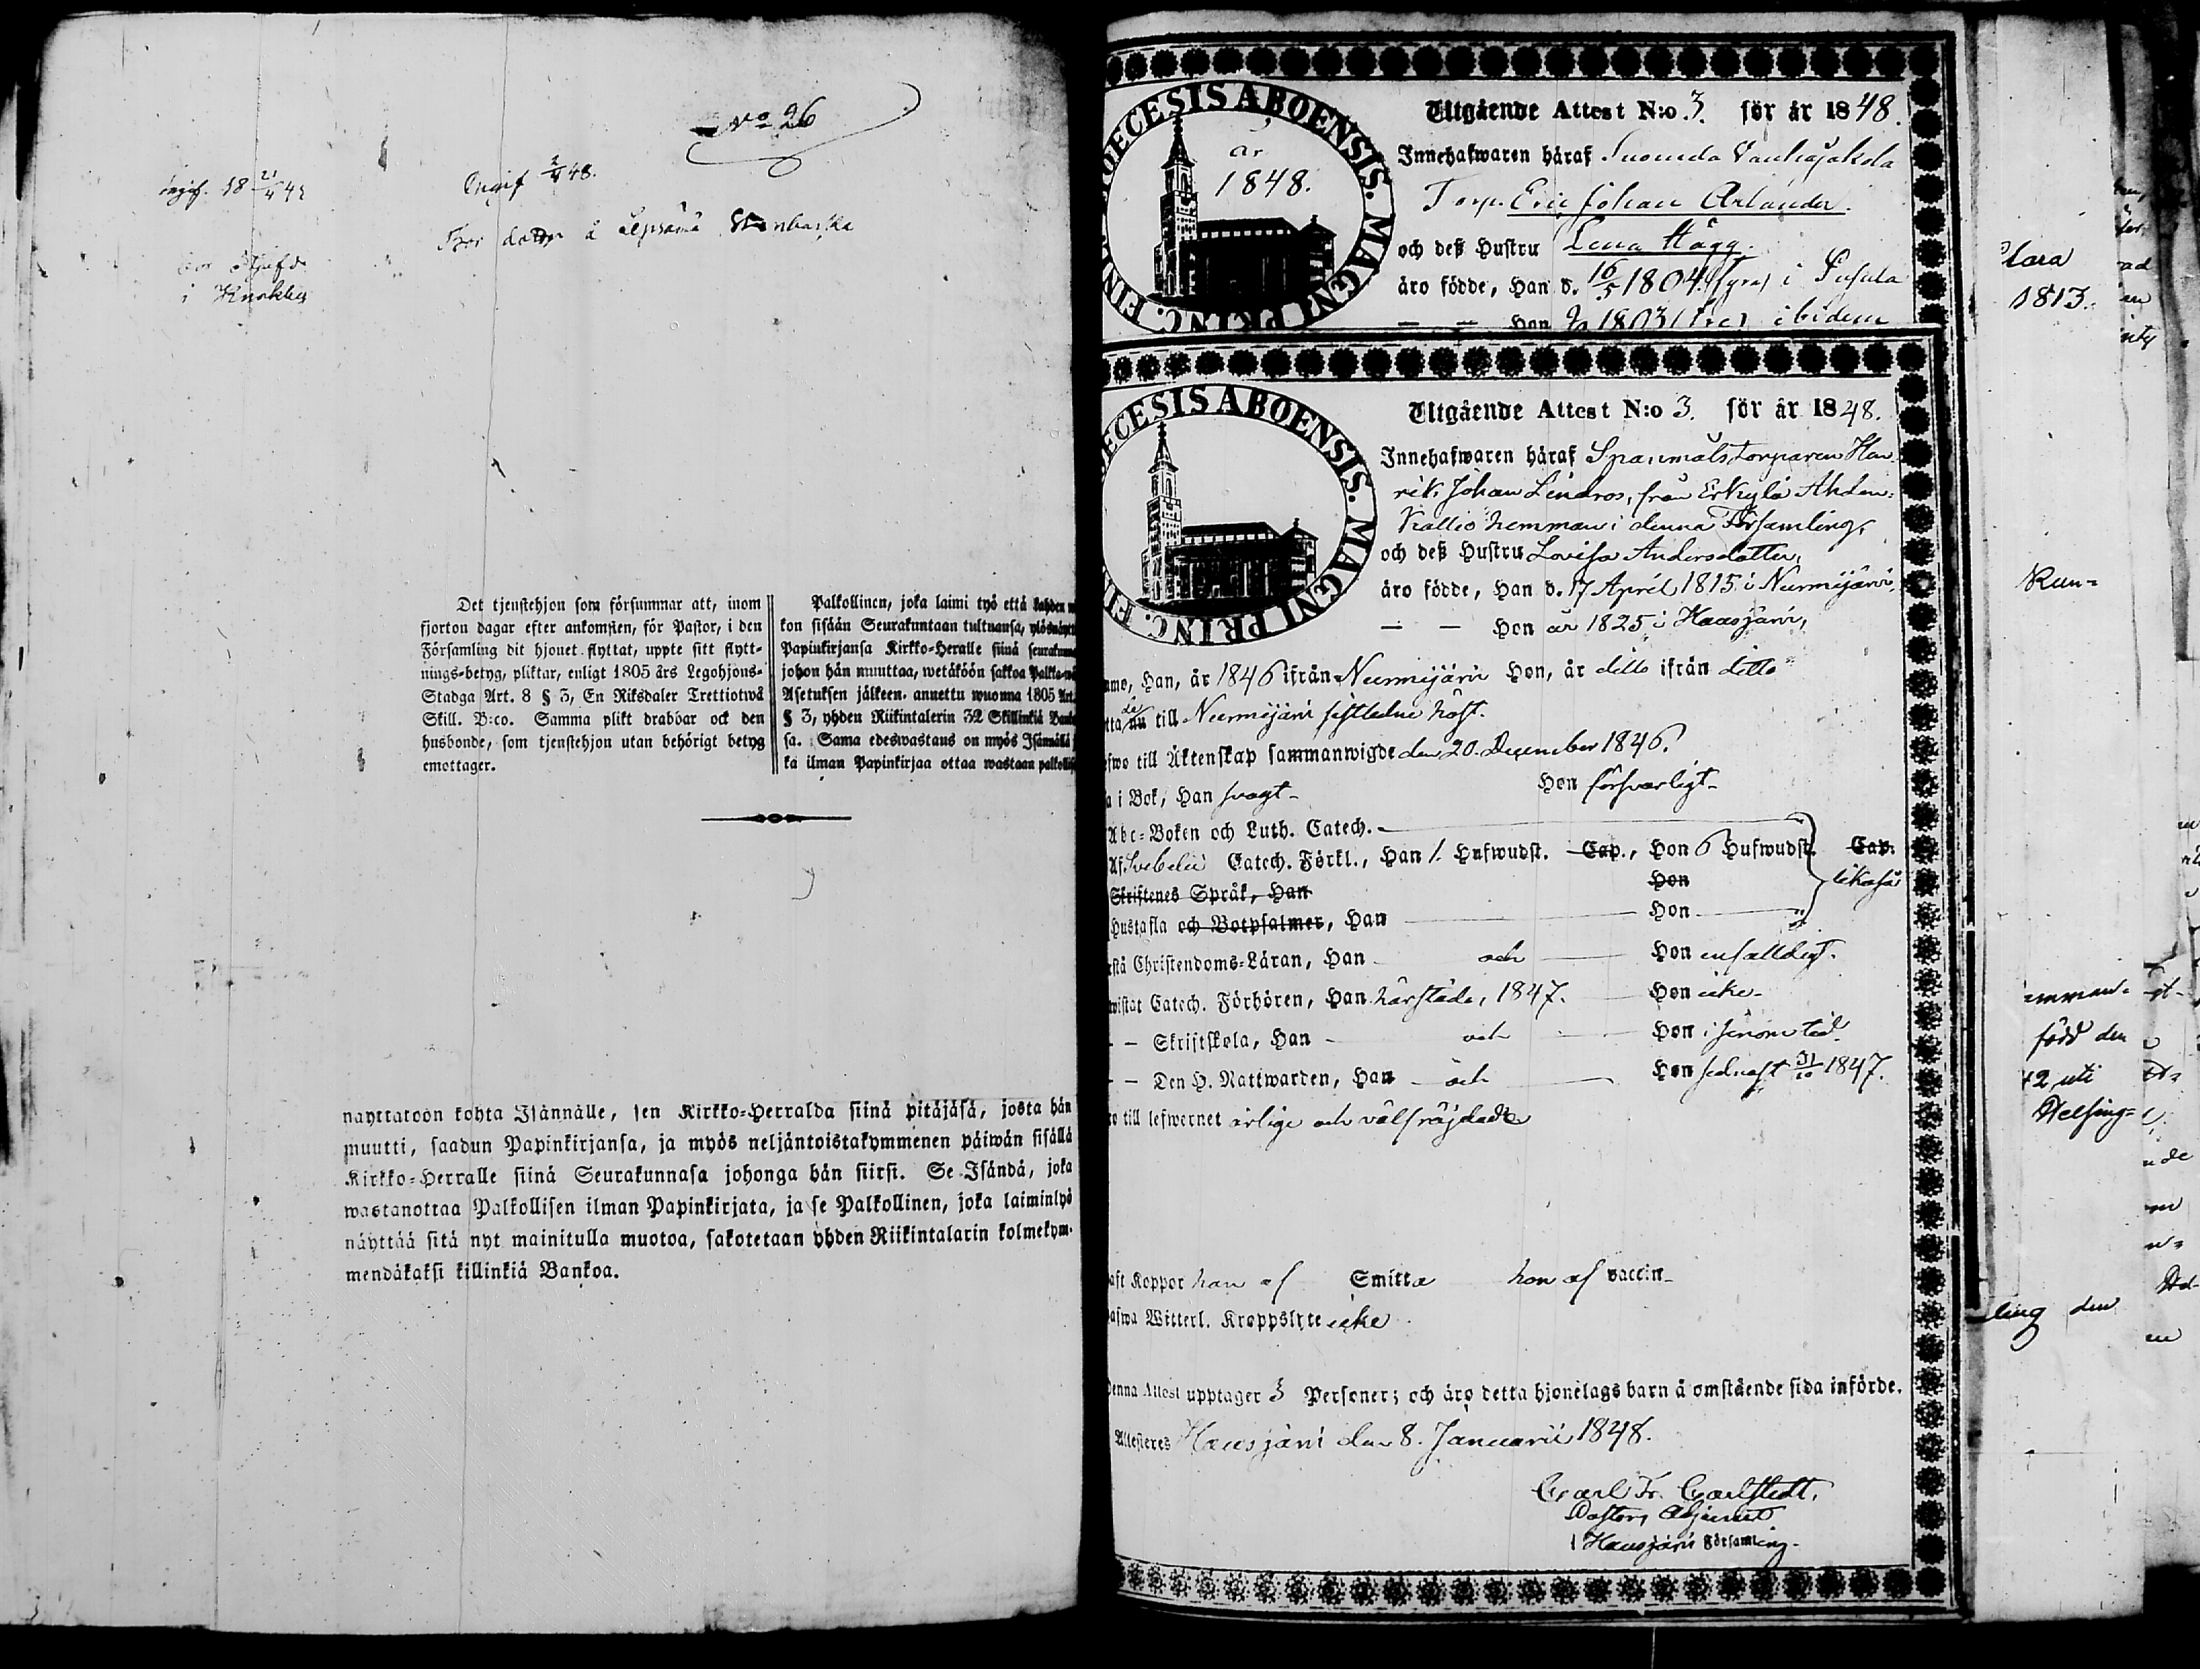 No 26
Ingif 2/4 48.
i Lepsämä
i Knekby
Det tjenstehjon som försummar att, inom
fjorton dagar efter ankomsten, för Pastor, i den
Församling dit hjonet flyttat, uppte sitt flytt-
nings-betyg, pliktar, enligt 1805 års Legohjons-
Stadga Art. 8 § 3, En Riksdaler Trettiotwå
Skill. B:co. Samma plikt drabbar ock den
husbonde, som tjenstehjon utan behörigt betyg
emottager.
Palkollinen, joka laimi lyö että kahden
kon sisään Seurakuntaan tultuansa, ylösnäyttä
Papinkirjansa Kirkko-Heralle siinä
johon hän muuttaa, wetäköön sakkoa
Asetuksen jälkeen, annettu wuonna 1805 Art.
§ 3, yhden Riikintalerin 32 Skillinkiä
sa. Sama edeswastaus on myös
ka ilman Papinkirjaa ottaa wastaan
näyttätöön kohta Isännälle, sen Kirkko-Herralda siinä pitäjäsä, josta hän
muutti, saadun Papinkirjansa, ja myös neljäntoistakymmenen päiwän sisällä
Kirkko-Herralle siinä Seurakunnasa johonga hän siirsi. Se Isändä, joka
wastanottaa Palkollisen ilman Papinkirjata, ja se Palkollinen, joka laiminlyö
näyttää sitä nyt mainitulla muotoa, sakotetaan yhden Riikintalarin kolmekym-
mendäkaksi killinkiä Bankoa.
DECESIS ABOENSIS. MAGNI PRINC. FIN
år
1848.
Utgående Attest N:o 3. för år 1848.
Innehafwaren häraf Suomela Vanhajakola
Torp. Eric Johan Arlander.
och deß Hustru Lena Hägg.
äro födde, Han d. 16/5 1804 (fyra) i Pusula
— — Hon 1803 (tre) ibidem
DECESIS ABOENSIS. MAGNI PRINC. FIN
Utgående Attest N:o 3. för år 1848.
Innehafwaren häraf Spanmåls Torparen Hen
rik Johan Lindros, från Erkylä Ahden-
kallio hemman i denna Församling,
och deß Hustru Lovisa Andersdotter,
äro födde, Han d. 17 April 1815 i Nurmijärvi,
— — Hon år 1825 i Hausjärvi,
mo, Han, år 1846 ifrån Nurmijärvi Hon, år ditto ifrån ditto
tta de nu till Nurmijärvi sistledne höst.
fwo till Äktenskap sammanwigde den 20. December 1846.
a i Bok, Han svagt- Hon försvarligt-
Abc-Boken och Luth. Catech.
Af Svebelii Catech. Förkl., Han 1. Hufwudst. Cap., Hon 6 Hufwudst. Cap. likaså
Skriftenes Språk, Han Hon
Hustafla och Botpsalmer, Han Hon
stå Christendoms-Läran, Han och Hon enfalldigt.
wistat Catech. Förhören, Han härstädes, 1847. Hon icke-
- — Skriftskola, Han och Hon i sinom tid.
- — Den H. Nattwarden, Han och Hon sednast 31/10 1847.
ro till lefwernet ärlige och välfräjdade
aft Koppor han af Smitta hon af vaccin-
afwa Witterl. Kroppslyte icke
Denna Attest upptager 3 Personer; och äro detta hjonelags barn å omstående sida införde.
Attesteres Hausjärvi den 8. Januarii 1848.
Carl Fr. Carlstedt,
Pastors Adjunct
i Hausjärvi Församling-
Clara
1813.
Run-
emman-
född den
42 uti
Helsing-
ling den